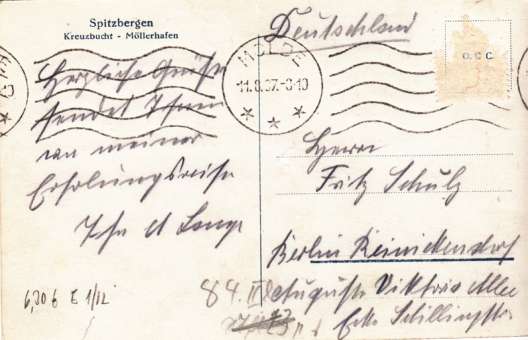 Spitzbergen
Kreuzbucht - Möllerhafen
Deutschland
O. C. C.
MOLDE
11.8.37.-8-10
Herzliche Grüße
sendet Ihnen
von meiner
Erholungsreise
Ihr
Herrn
Fritz Schulz
Berlin Reinickendorf
Auguste Viktoria Allee
Ecke Schillingstr.
6,30 6 E 1/12
84.